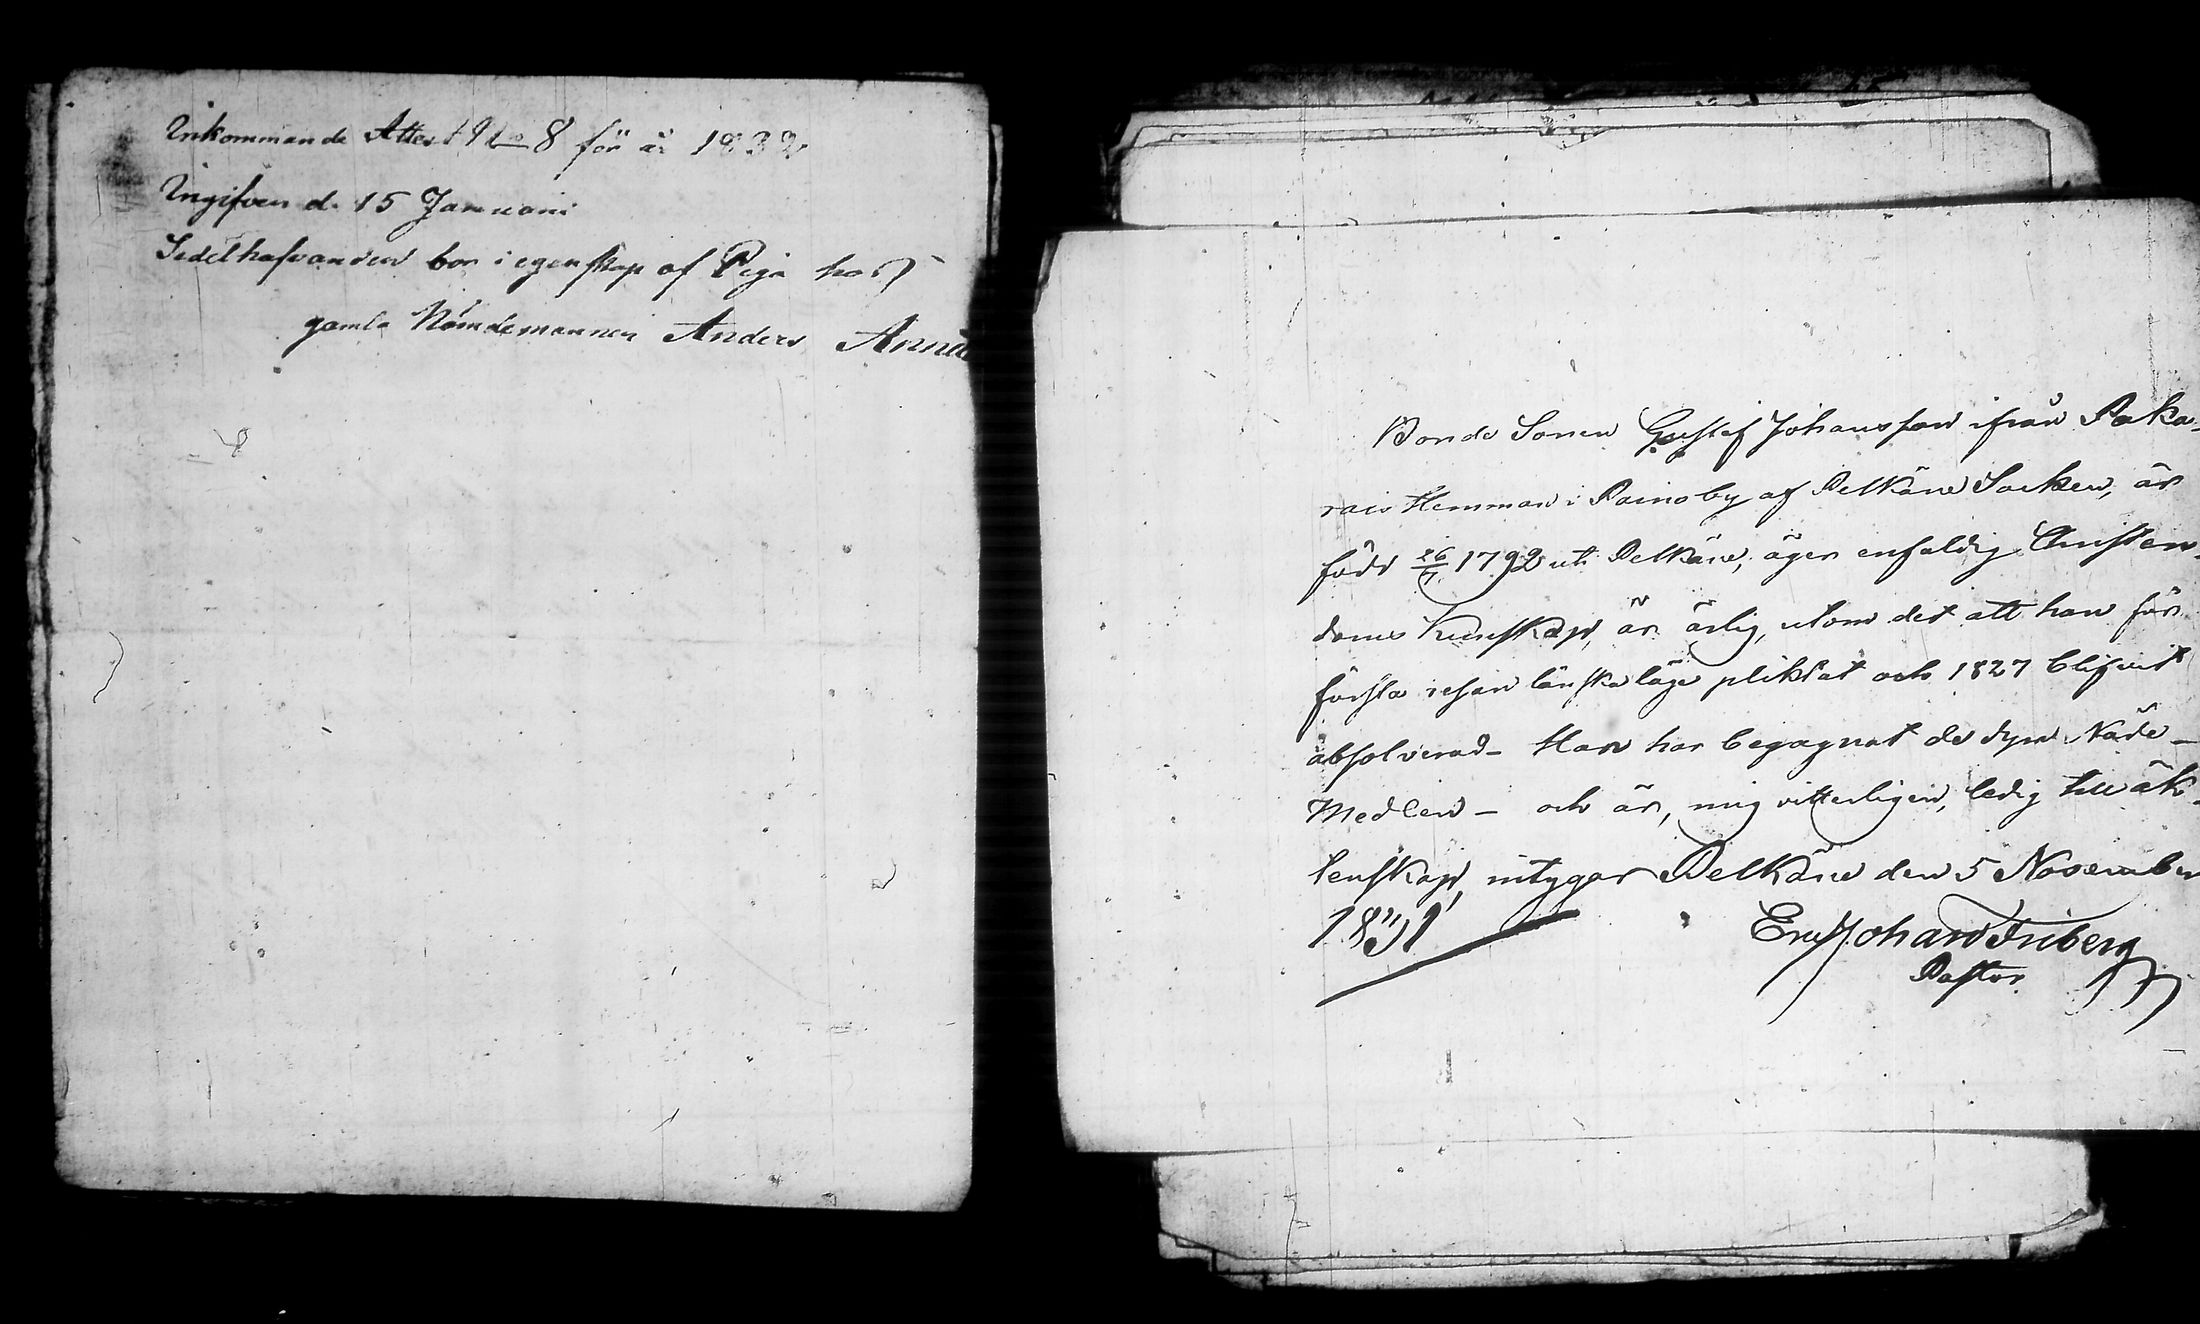 Inkommande Attest No 8 för år 1832
Ingifven d. 15 Januarii
Sedelhafvanden bor i egenskap af Piga hos
gamla Nämdemannen Anders
Bonde Sonen Gustaf Johansson ifrån Paka-
rais Hemman i Painoby af Pelkäne Socken, är
född 26/7 1792 uti Pelkäne, äger enfaldig Christen-
doms Kunskap, är ärlig, utom det att han för
första resan lönskaläge pliktat och 1827 blifvit
absolverad - Han har begagnat de dyra Nåde-
Medlen - och är, mig vitterligen, ledig till äk-
tenskap, intygar Pelkäne den 5 November
1831
Johan Friberg
Pastor